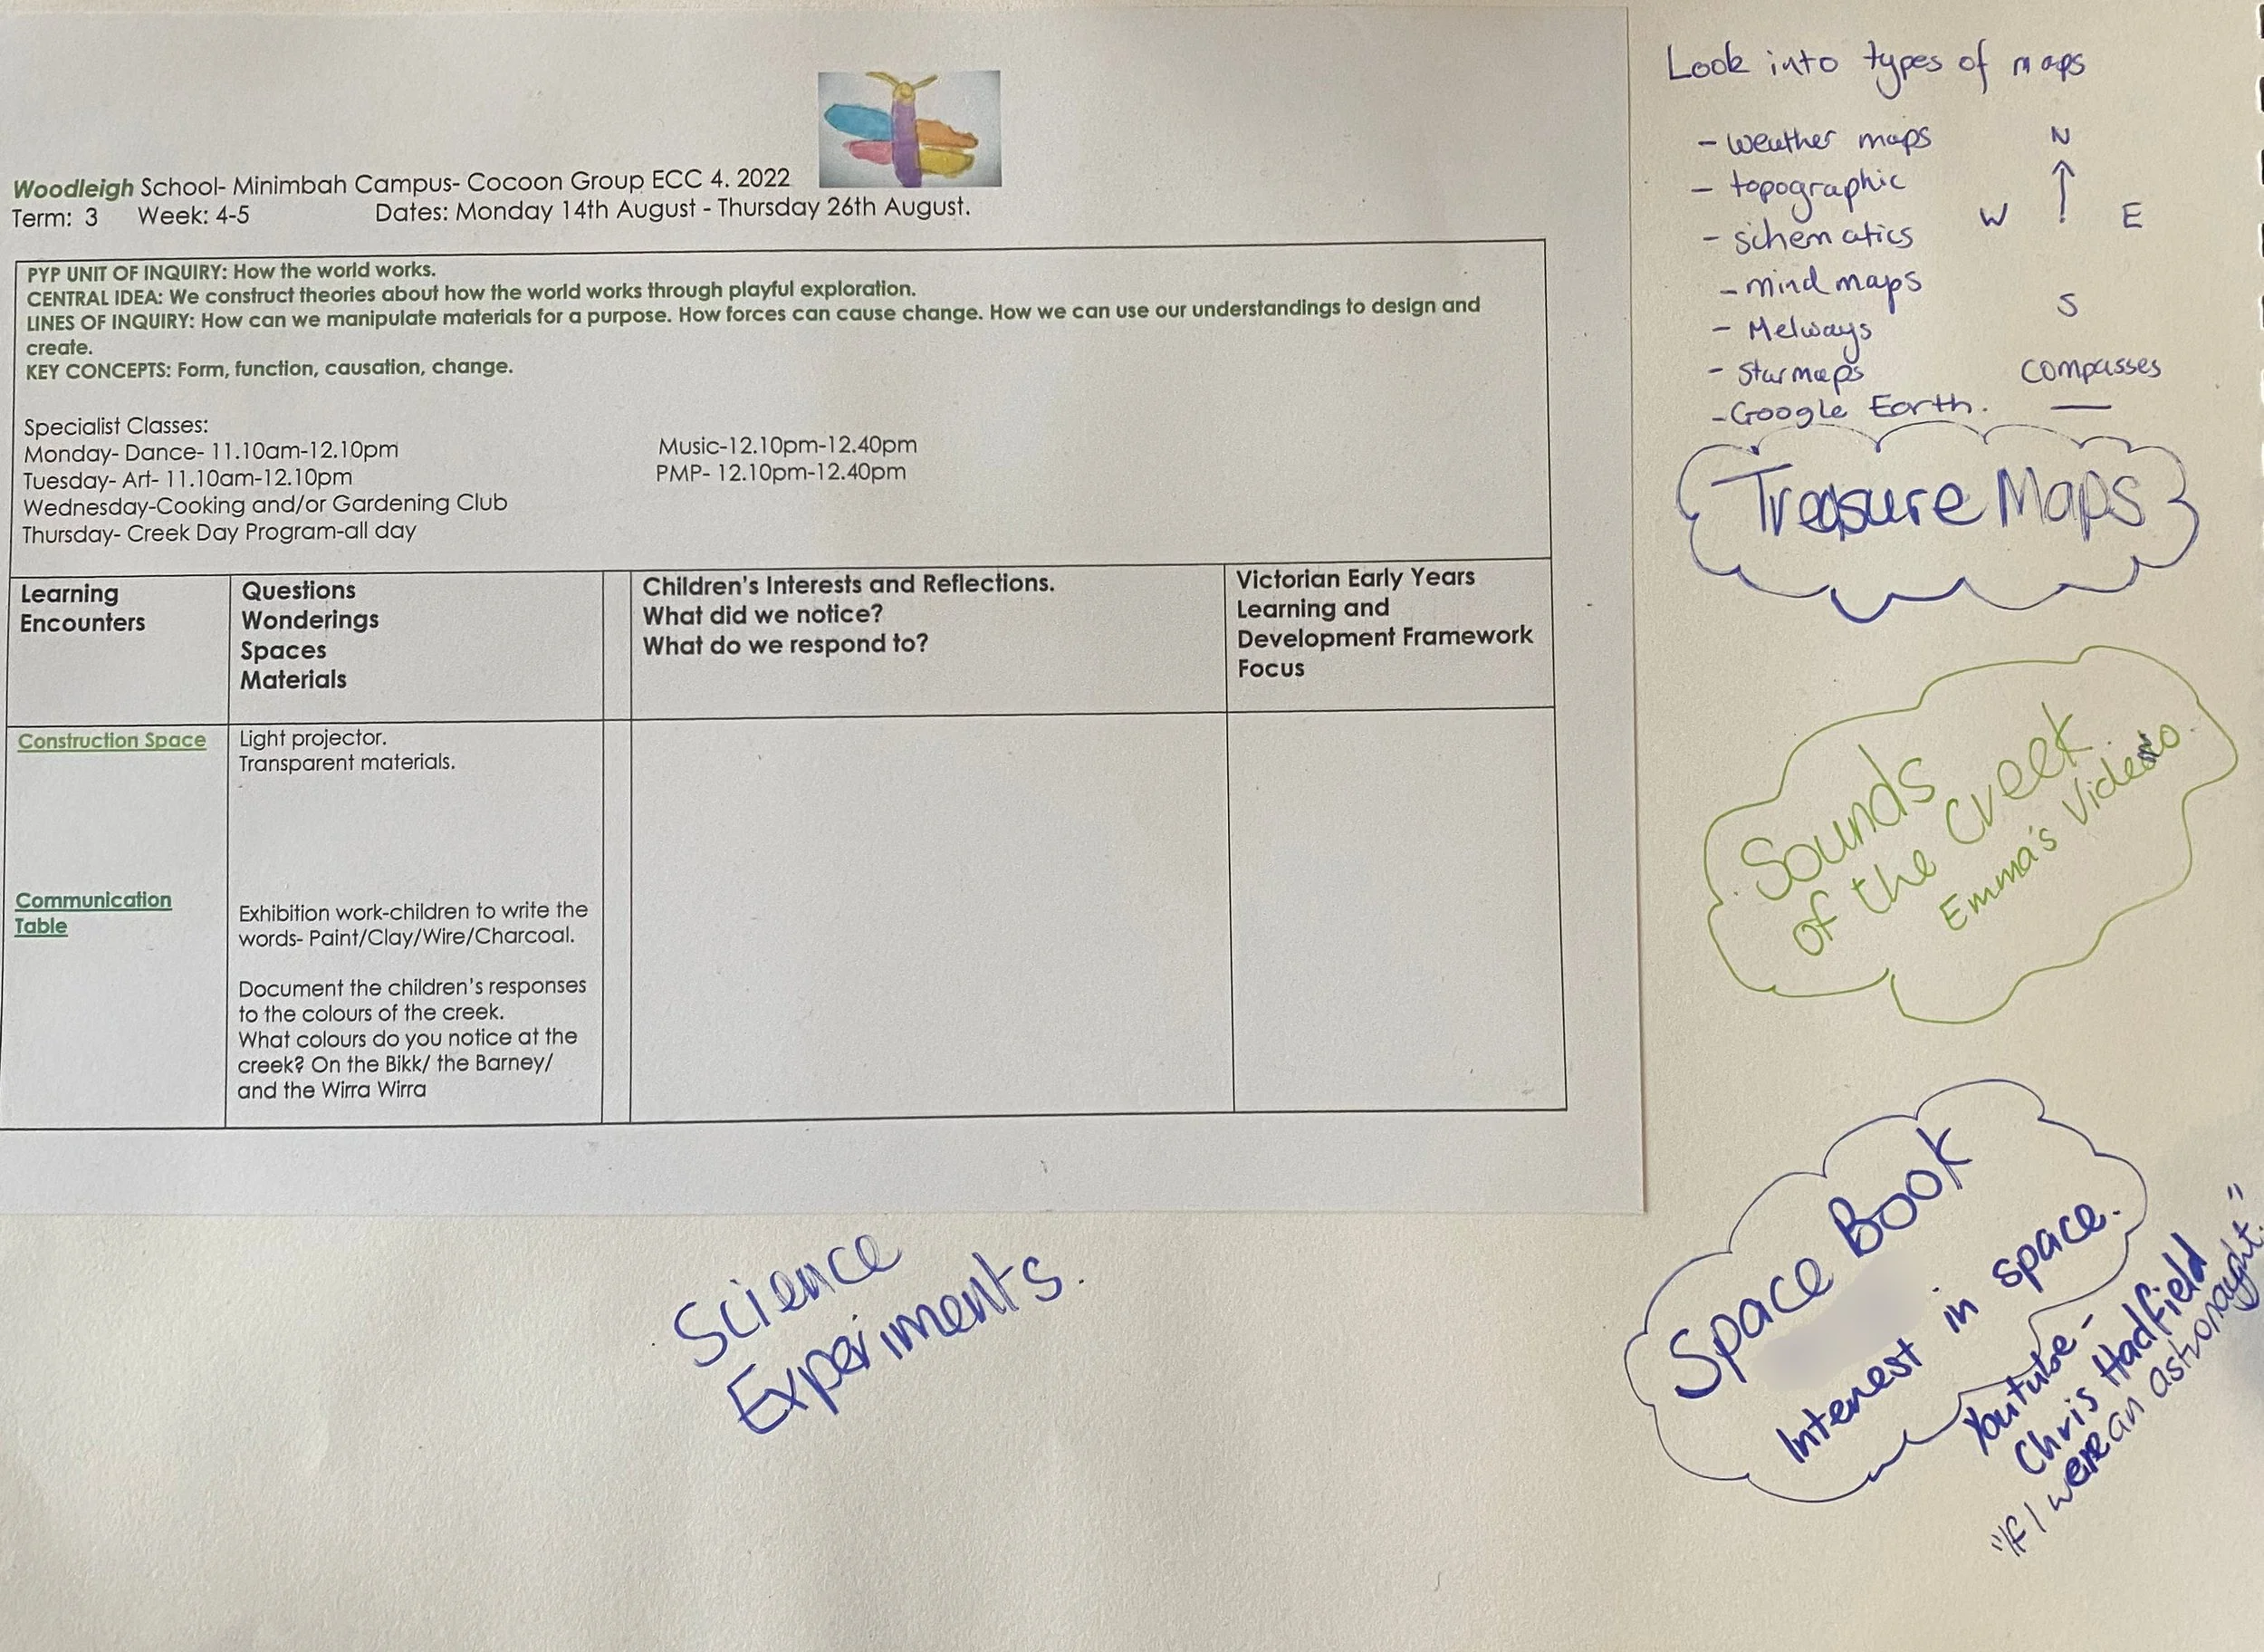 Woodleigh School- Minimbah Campus- Cocoon Group ECC 4. 2022
Term: 3 Week: 4-5 Dates: Monday 14th August - Thursday 26th August.
PYP UNIT OF INQUIRY: How the world works.
CENTRAL IDEA: We construct theories about how the world works through playful exploration.
LINES OF INQUIRY: How can we manipulate materials for a purpose. How forces can cause change. How we can use our understandings to design and
create.
KEY CONCEPTS: Form, function, causation, change.
Specialist Classes:
Monday- Dance- 11.10am-12.10pm Music-12.10pm-12.40pm
Tuesday- Art- 11.10am-12.10pm PMP- 12.10pm-12.40pm
Wednesday-Cooking and/or Gardening Club
Thursday- Creek Day Program-all day
Learning
Encounters
Questions
Wonderings
Spaces
Materials
Children's Interests and Reflections.
What did we notice?
What do we respond to?
Victorian Early Years
Learning and
Development Framework
Focus
Construction Space
Light projector.
Transparent materials.
Communication
Table
Exhibition work-children to write the
words- Paint/Clay/Wire/Charcoal.
Document the children's responses
to the colours of the creek.
What colours do you notice at the
creek? On the Bikk/ the Barney/
and the Wirra Wirra
Look into types of maps
- weather maps
- topographic
- schematics
- mind maps
- Melways
- Star maps
- Google Earth.
N
W E
S
compasses
Treasure Maps
Sounds
of the Creek
Emma's Video.
Space Book
Interest in space.
Youtube -
Chris Hadfield
"If I were an astronaught."
Science
Experiments.